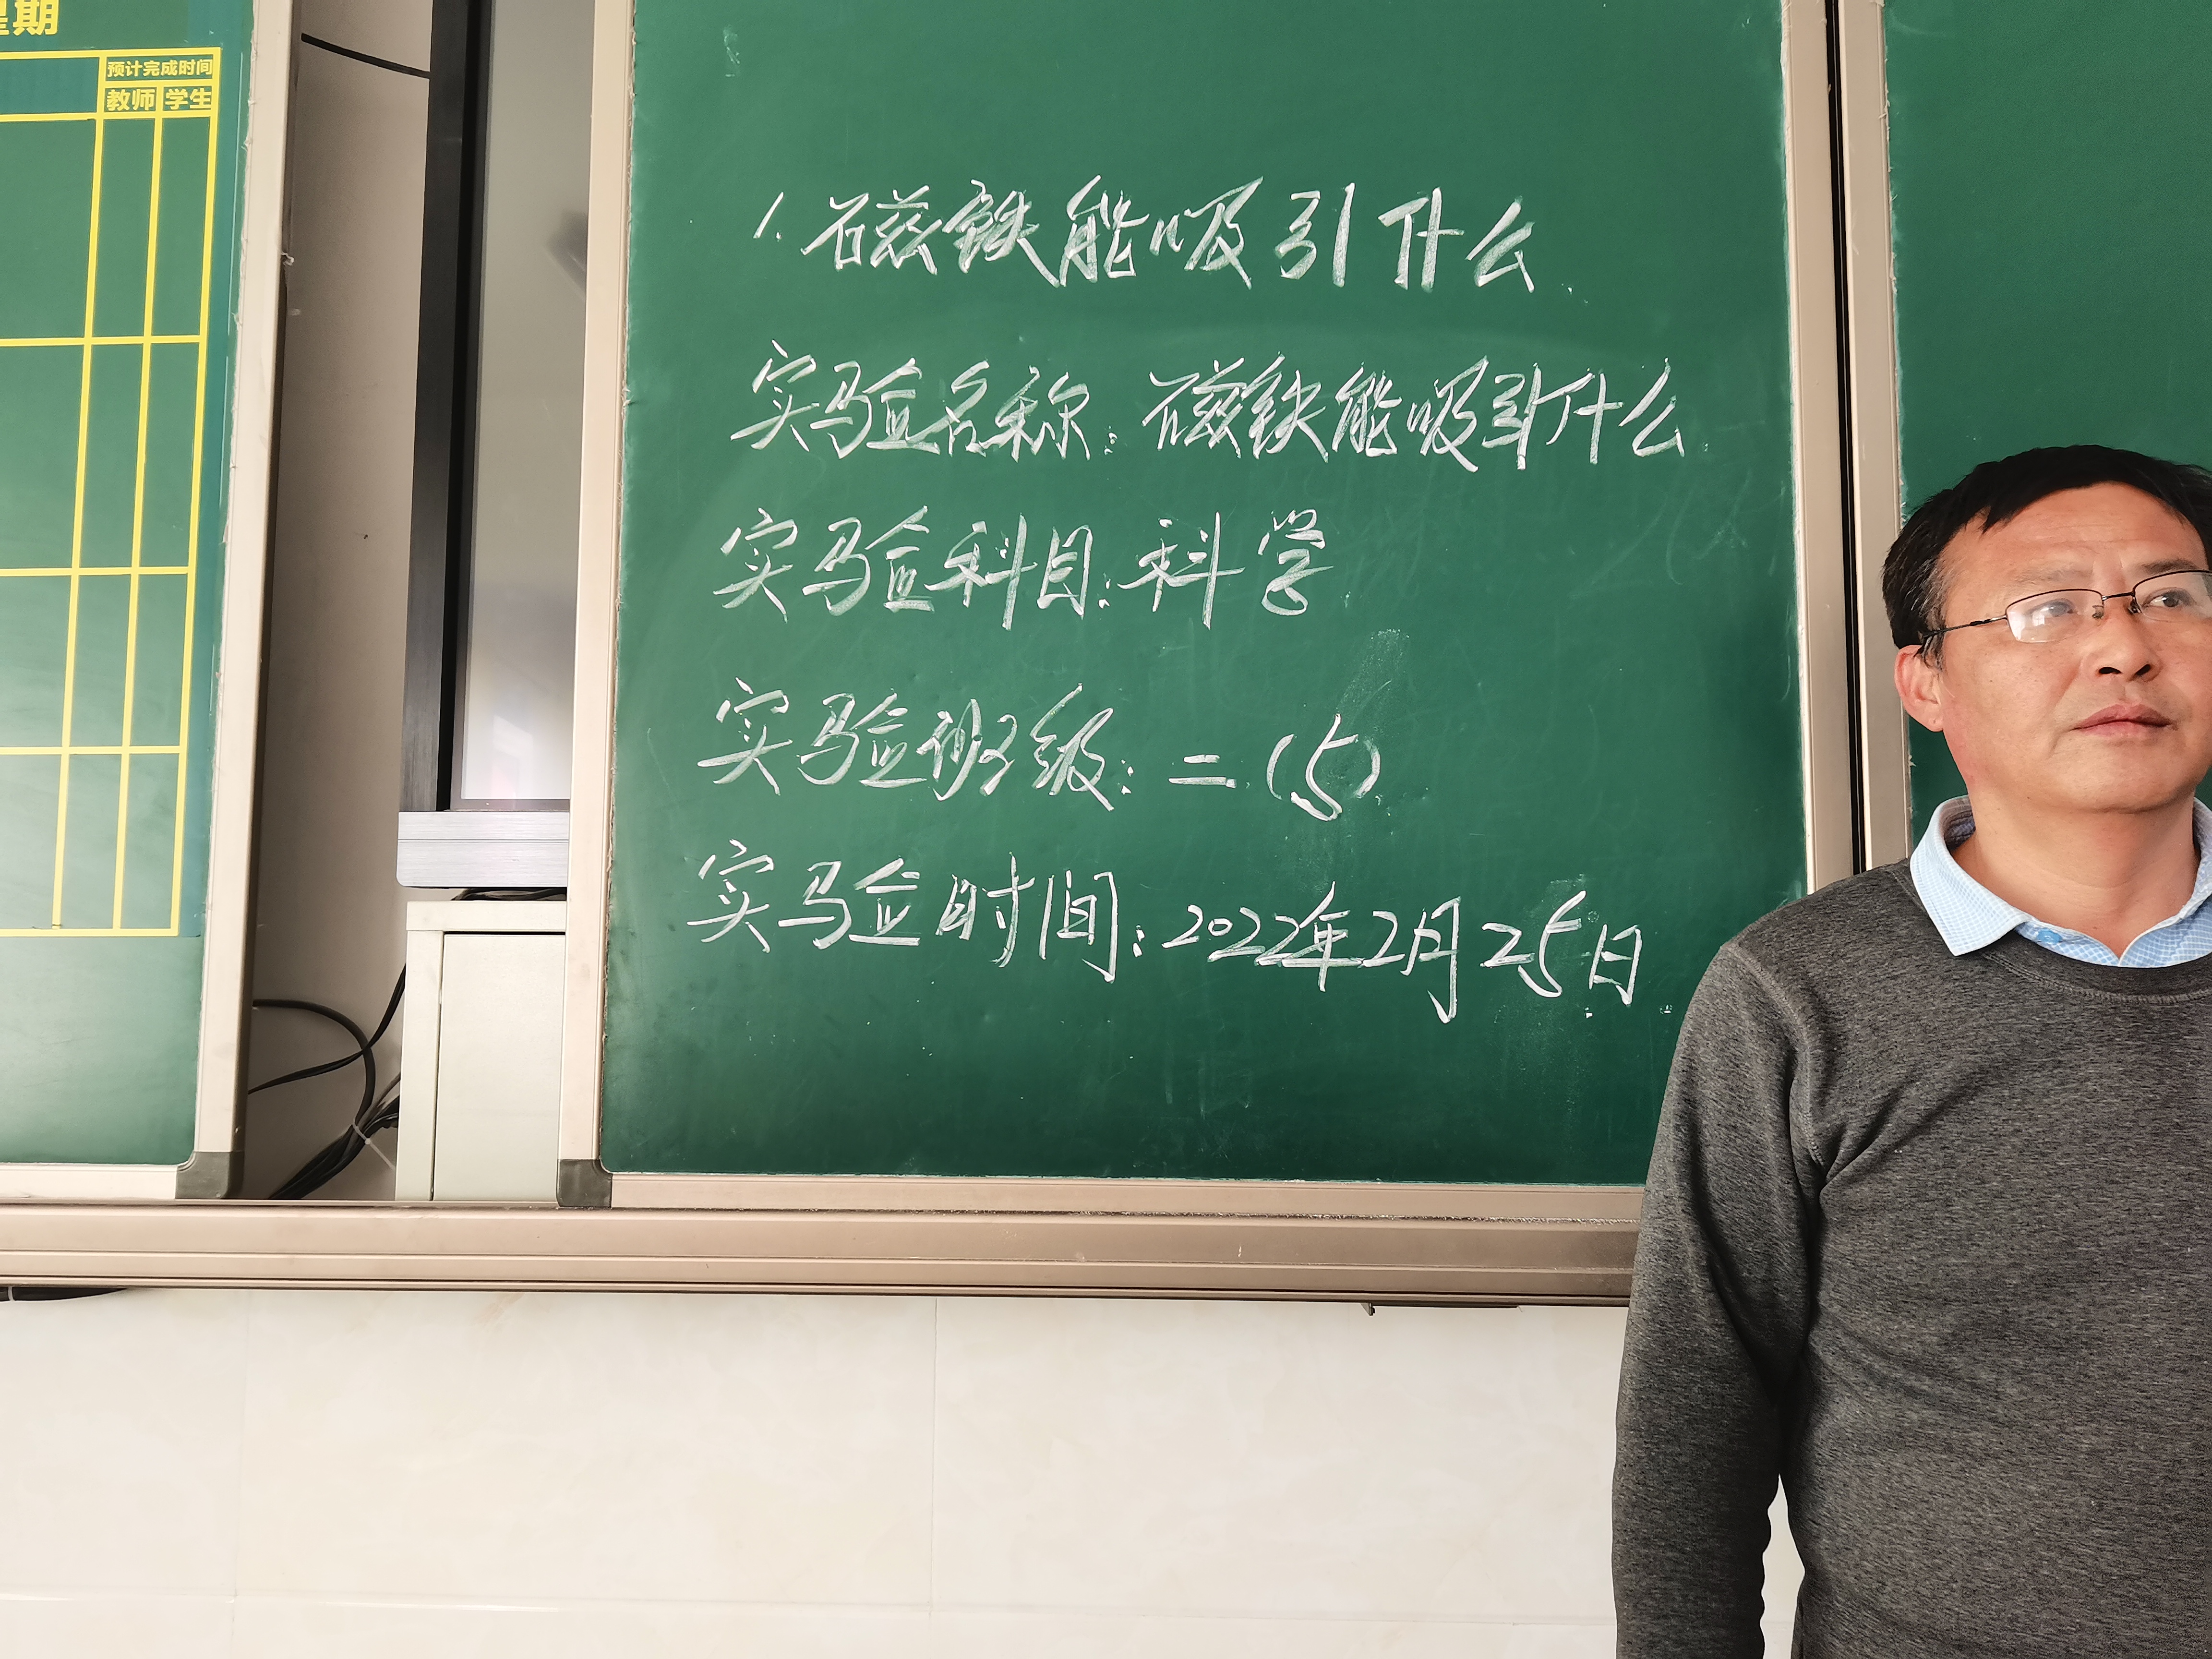 星期
预计完成时间
教师 学生
1. 磁铁能吸引什么
实验名称: 磁铁能吸引什么
实验科目: 科学
实验班级: 二.(5)
实验时间: 2022年2月25日